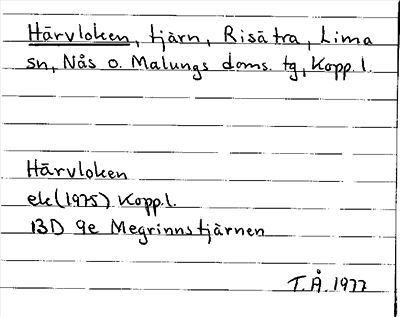 Härvloken, tjärn, Risätra, Lima
sn, Nås o. Malungs doms. tg, Kopp. l.
Härvloken
ek (1975) Kopp. l.
13D 9e Megrinnstjärnen
T.Å. 1977